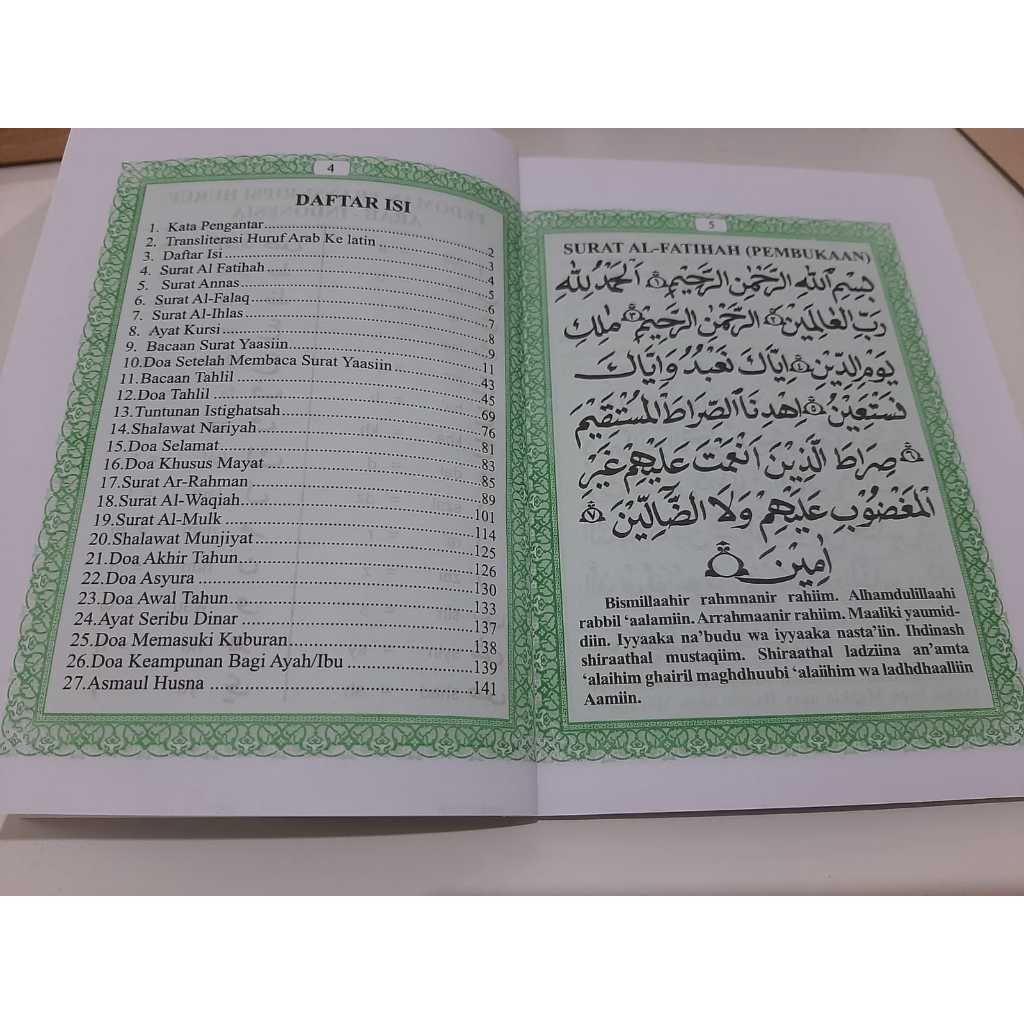 4
DAFTAR ISI
1. Kata Pengantar 2
2. Transliterasi Huruf Arab Ke latin 3
3. Daftar Isi 4
4. Surat Al Fatihah 5
5. Surat Annas 6
6. Surat Al-Falaq 7
7. Surat Al-Ihlas 8
8. Ayat Kursi 9
9. Bacaan Surat Yaasiin 11
10.Doa Setelah Membaca Surat Yaasiin 43
11.Bacaan Tahlil 45
12.Doa Tahlil 69
13.Tuntunan Istighatsah 76
14.Shalawat Nariyah 81
15.Doa Selamat 83
16.Doa Khusus Mayat 85
17.Surat Ar-Rahman 89
18.Surat Al-Waqiah 101
19.Surat Al-Mulk 114
20.Shalawat Munjiyat 125
21.Doa Akhir Tahun 126
22.Doa Asyura 130
23.Doa Awal Tahun 133
24.Ayat Seribu Dinar 137
25.Doa Memasuki Kuburan 138
26.Doa Keampunan Bagi Ayah/Ibu 139
27.Asmaul Husna 141
5
SURAT AL-FATIHAH (PEMBUKAAN)
بِسْمِ اللهِ الرَّحْمٰنِ الرَّحِيْمِ ١ اَلْحَمْدُ لِلّٰهِ
رَبِّ الْعَالَمِيْنَ ٢ الرَّحْمٰنِ الرَّحِيْمِ ٣ مٰلِكِ
يَوْمِ الدِّيْنِ ٤ اِيَّاكَ نَعْبُدُ وَاِيَّاكَ
نَسْتَعِيْنُ ٥ اِهْدِنَا الصِّرَاطَ الْمُسْتَقِيْمَ
٦ صِرَاطَ الَّذِيْنَ اَنْعَمْتَ عَلَيْهِمْ غَيْرِ
الْمَغْضُوْبِ عَلَيْهِمْ وَلَا الضَّالِّيْنَ ٧
اٰمِيْنَ
Bismillaahir rahmnanir rahiim. Alhamdulillaahi
rabbil ‘aalamiin. Arrahmaanir rahiim. Maaliki yaumid-
diin. Iyyaaka na’budu wa iyyaaka nasta’iin. Ihdinash
shiraathal mustaqiim. Shiraathal ladziina an’amta
‘alaihim ghairil maghdhuubi ‘alaiihim wa ladhdhaalliin
Aamiin.